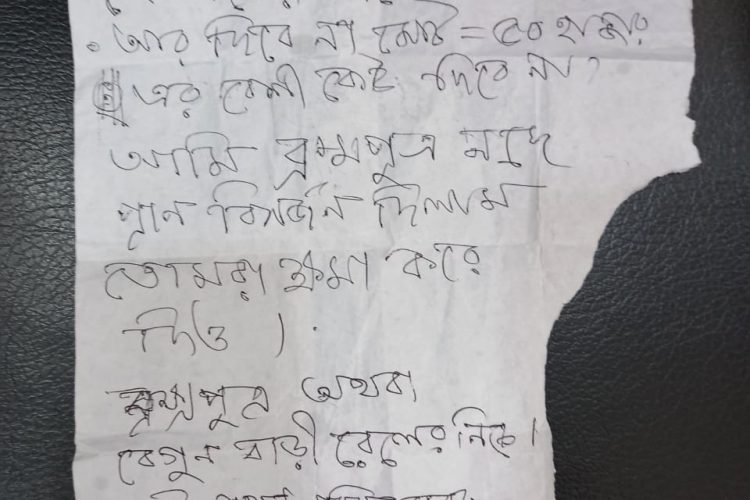 আর দিবে না মোট = ৫০ হাজার
এর বেশী কেহ দিবে না?
আমি ব্রম্মপুত্র নদে
প্রান বিসর্জন দিলাম
তোমরা ক্ষমা করে
দিও।
ব্রহ্মপুত্র অথবা
বেগুন বাড়ী রেলের নিচে।